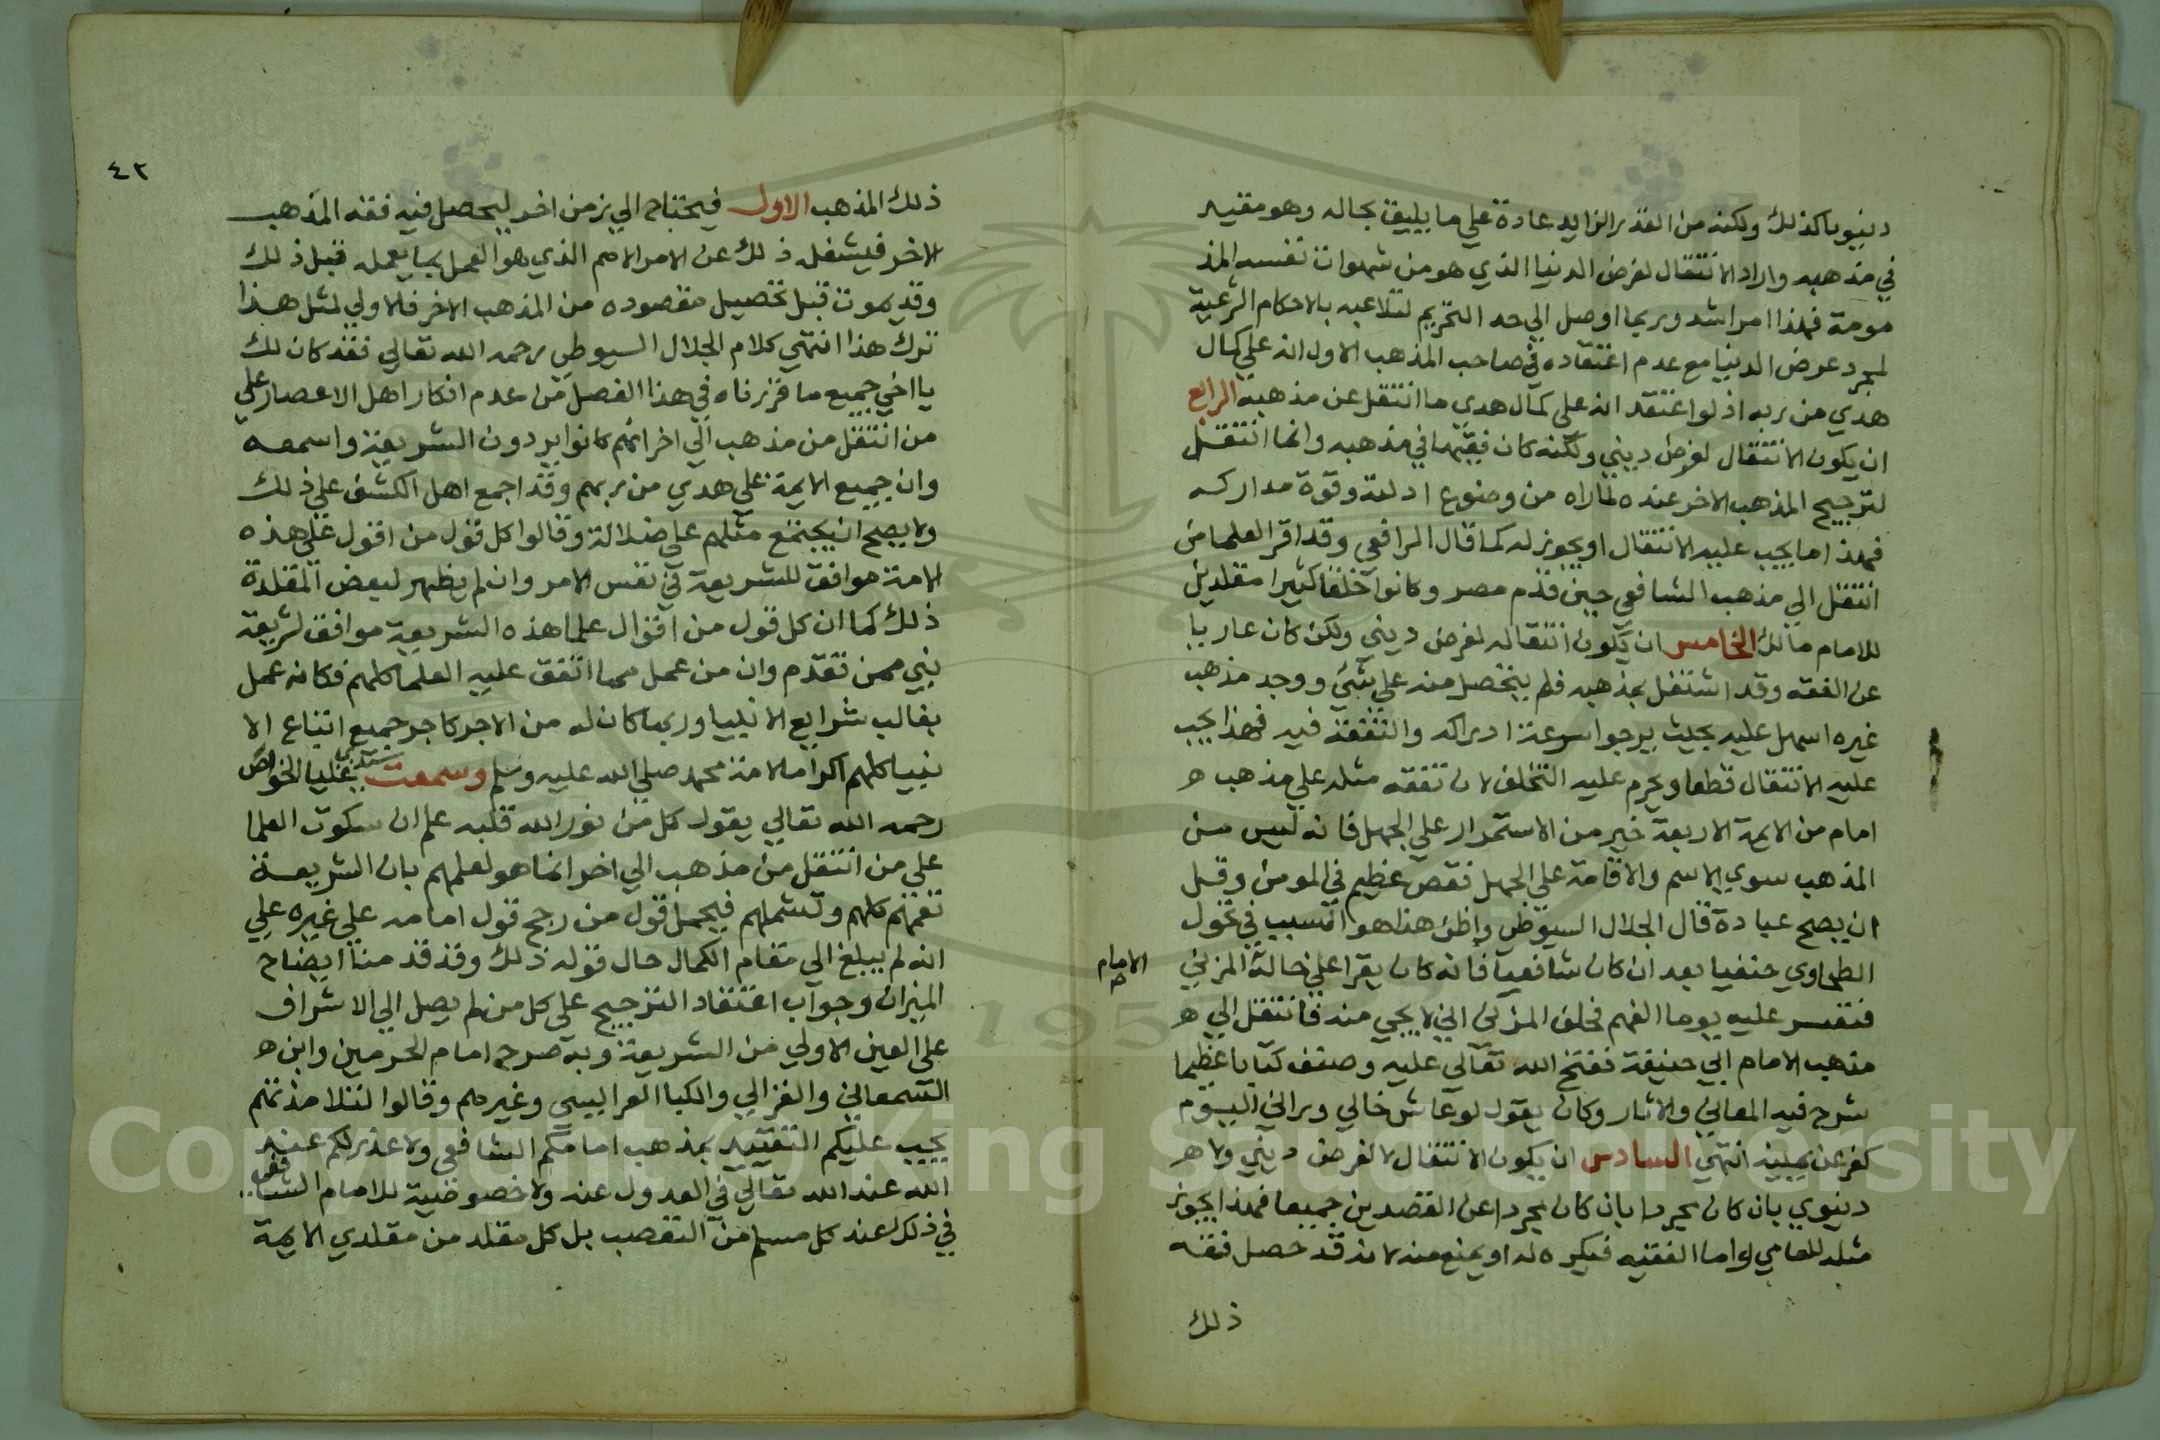 دنيويا كذلك ولكنه من القدر الزايد عادة علي ما يليق بحاله وهو مقيد
في مذهبه واراد الانتقال لغرض الدنيا الذي هو من شهوات نفسه المذ
مومة فهذا امر اشد وربما اوصل الي حد التحريم لتلاعبه بالاحكام الشرعية
لمجرد عرض الدنيا مع عدم اعتقاده في صاحب المذهب الاول انه علي كمال
هدي من ربه اذ لو اعتقد انه علي كمال هدي ما انتقل عن مذهبه الرابع
ان يكون الانتقال لغرض ديني ولكنه كان فقيها في مذهبه وانما انتقل
لترجيح المذهب الاخر عنده لما راه من وضوح ادلته وقوة مداركه
فهذا اما يجب عليه الانتقال او يجوز له كما قال الرافعي وقد اقر العلما من
انتقل الي مذهب الشافعي حين قدم مصر وكانوا خلقا كثيرا مقلدين
للامام مالك الخامس ان يكون انتقاله لغرض ديني ولكن كان عاريا
عن الفقه وقد اشتغل بمذهبه فلم يتحصل منه علي شيء ووجد مذهب
غيره اسهل عليه بحيث يرجوا سرعة ادراكه والتفقه فيه فهذا يجب
عليه الانتقال قطعا ويحرم عليه التخلف لان تفقه مثله علي مذهب ه
امام من الايمة الاربعة خير من الاستمرار علي الجهل فانه ليس من
المذهب سوي الاسم والاقامة علي الجهل نقص عظيم في المومن وقل
ان يصح عبادة قال الجلال السيوطي واظن هذا هو السبب في تحول
الامام
الطحاوي حنفيا بعد ان كان شافعيا فانه كان يقرا علي خاله المزني
فتعسر عليه يوما الفهم فحلف المزني اني لا يجي منه فانتقل الي ه
مذهب الامام ابي حنيفة ففتح الله تعالي عليه وصنف كتابا عظيما
شرح فيه المعاني والاثار وكان يقول لو عاش خالي وراني اليوم
كفر عن يمينه انتهي السادس ان يكون الانتقال لا لغرض ديني ولا ه
دنيوي بان كان مجردا بان كان مجردا عن القصدين جميعا فهذا يجوز
مثله للعامي واما الفقيه فيكره له او يمنع منه لانه قد حصل فقه
ذلك
٤٢
ذلك المذهب الاول فيحتاج الي زمن اخر ليحصل فيه فقه المذهب
الاخر فيشغله ذلك عن الامر الاهم الذي هو العمل بما يعمله قبل ذلك
وقد يموت قبل تحصيل مقصوده من المذهب الاخر فالاولي لمثل هذا
ترك هذا انتهي كلام الجلال السيوطي رحمه الله تعالي فقد كان لك
يا اخي جميع ما قررناه في هذا الفصل من عدم انكار اهل الاعصار علي
من انتقل من مذهب الي اخر انهم كانوا يرون الشريعة واسعه
وان جميع الايمة علي هدي من ربهم وقد اجمع اهل الكشف علي ذلك
ولا يصح ان يجتمع مثلهم علي ضلالة وقالوا كل قول من اقول علي هذه
الامة موافق للشريعة في نفس الامر وان لم يظهر لبعض المقلدة
ذلك كما ان كل قول من اقوال علما هذه الشريعة موافق لشريعة
نبي ممن تقدم وان من عمل مما اتفق عليه العلما كلهم فكانه عمل
بغالب شرايع الانبيا وربما كان له من الاجر كاجر جميع اتباع الا
نبيا كلهم اكراما لامة محمد صلي الله عليه وسلم وسمعت سيدي عليا الخواص
رحمه الله تعالي يقول كل من نور الله قلبه علم ان سكوت العلما
علي من انتقل من مذهب الي اخر انما هو لعلمهم بان الشريعة
تعمهم كلهم وتشملهم فيحمل قول من رجح قول امامه علي غيره علي
انه لم يبلغ الي مقام الكمال حال قوله ذلك وقد قدمنا ايضاح
الميزان وجواب اعتقاد الترجيح علي كل من لم يصل الي الاشراف
علي العين الاولي من الشريعة وبه صرح امام الحرمين وابن ه
السمعاني والغزالي والكيا الهراسي وغيرهم وقالوا لتلامذتهم
يجب عليكم التقييد بمذهب امامكم الشافعي ولا عذر لكم عند
الله عند الله تعالي في العدول عنه ولا خصوصية للامام الشافعي
في ذلك عند كل مسلم من التعصب بل كل مقلد من مقلدي الايمة
Copyright © King Saud University
195